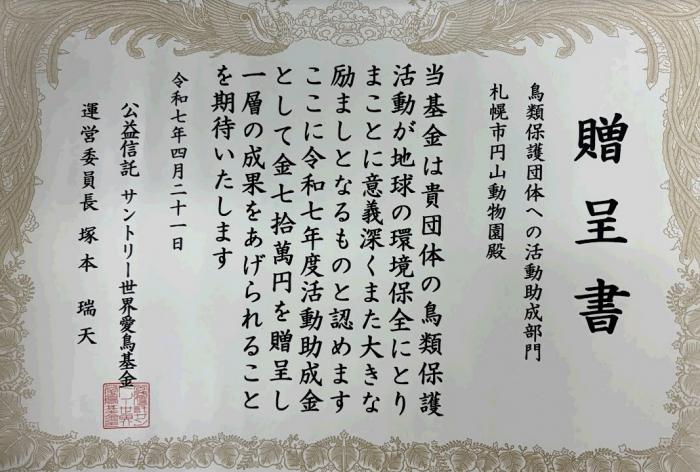 贈呈書
鳥類保護団体への活動助成部門
札幌市円山動物園殿
当基金は貴団体の鳥類保護
活動が地球の環境保全にとり
まことに意義深くまた大きな
励ましとなるものと認めます
ここに令和七年度活動助成金
として金七拾萬円を贈呈し
一層の成果をあげられること
を期待いたします
令和七年四月二十一日
公益信託 サントリー世界愛鳥基金
運営委員長 塚本 瑞天